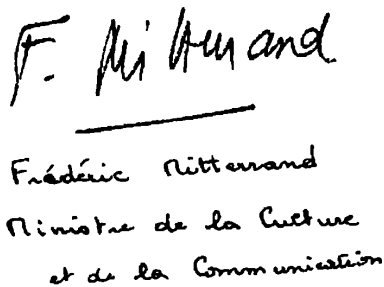 F. Mitterrand
Frédéric Mitterrand
Ministre de la Culture
et de la Communication